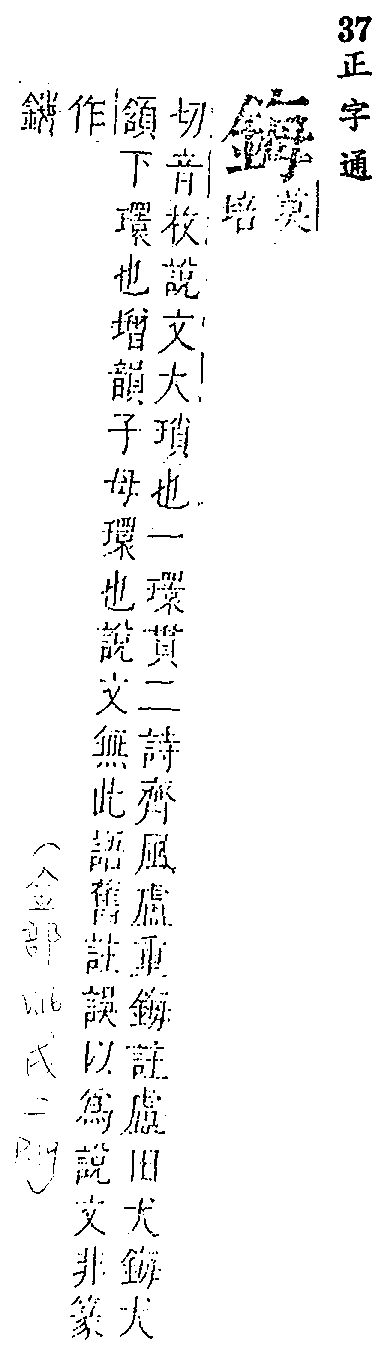 37正字通
鋂莫培
切音枚說文大瑣也一環貫二詩齊風盧重鋂註盧田犬鋂犬
頷下環也增韻子母環也說文無此語舊註誤以為說文非篆
作
（金部